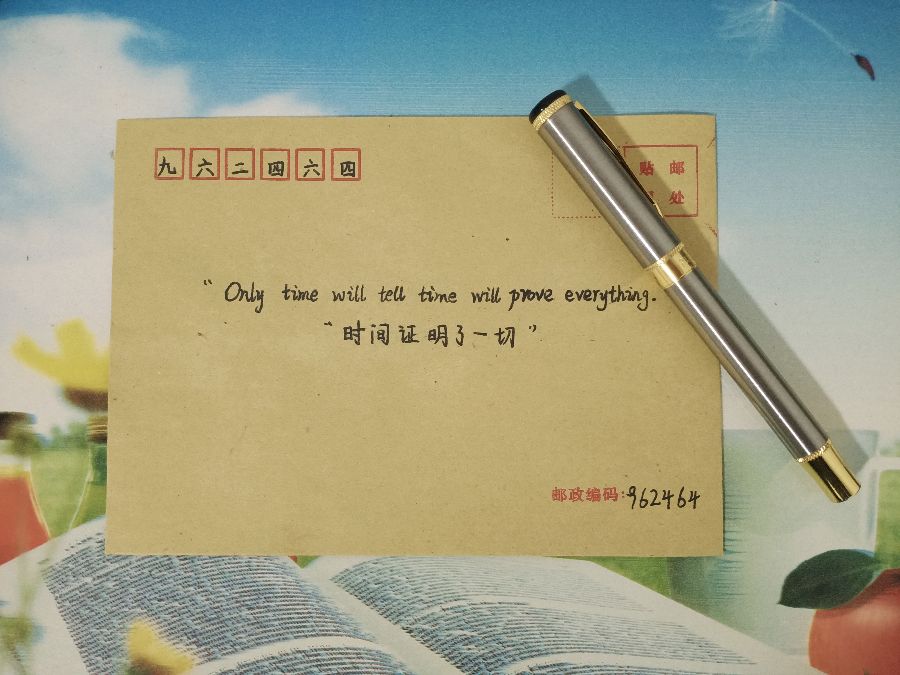 九六二四六四
贴 邮
处
“Only time will tell time will prove everything.
“时间证明了一切”
邮政编码:962464